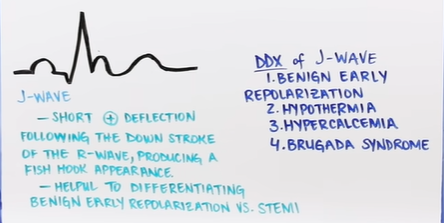 J-WAVE
- SHORT ⊕ DEFLECTION
FOLLOWING THE DOWN STROKE
OF THE R-WAVE, PRODUCING A
FISH HOOK APPEARANCE.
- HELPFUL TO DIFFERENTIATING
BENIGN EARLY REPOLARIZATION VS. STEMI
DDX OF J-WAVE
1. BENIGN EARLY
REPOLARIZATION
2. HYPOTHERMIA
3. HYPERCALCEMIA
4. BRUGADA SYNDROME